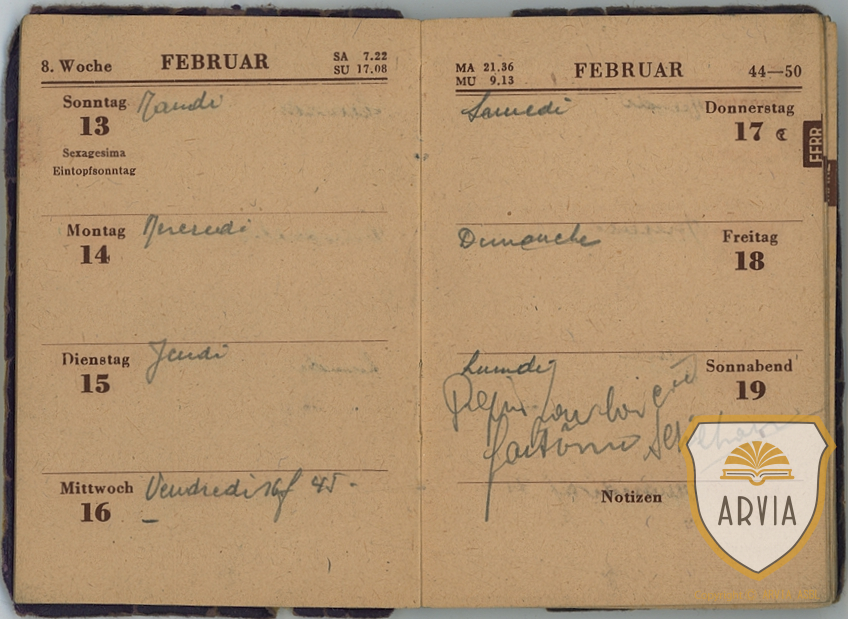 8. Woche FEBRUAR SA 7.22
SU 17.08
Sonntag Mardi
13
Sexagesima
Eintopfsonntag
Montag Mercredi
14
Dienstag Jeudi
15
Mittwoch Vendredi 16 f 45-
16
MA 21.36 FEBRUAR 44—50
MU 9.13
Samedi Donnerstag
17
FEBR
Dimanche Freitag
18
Lundi Sonnabend
19
fantôme
Notizen
ARVIA